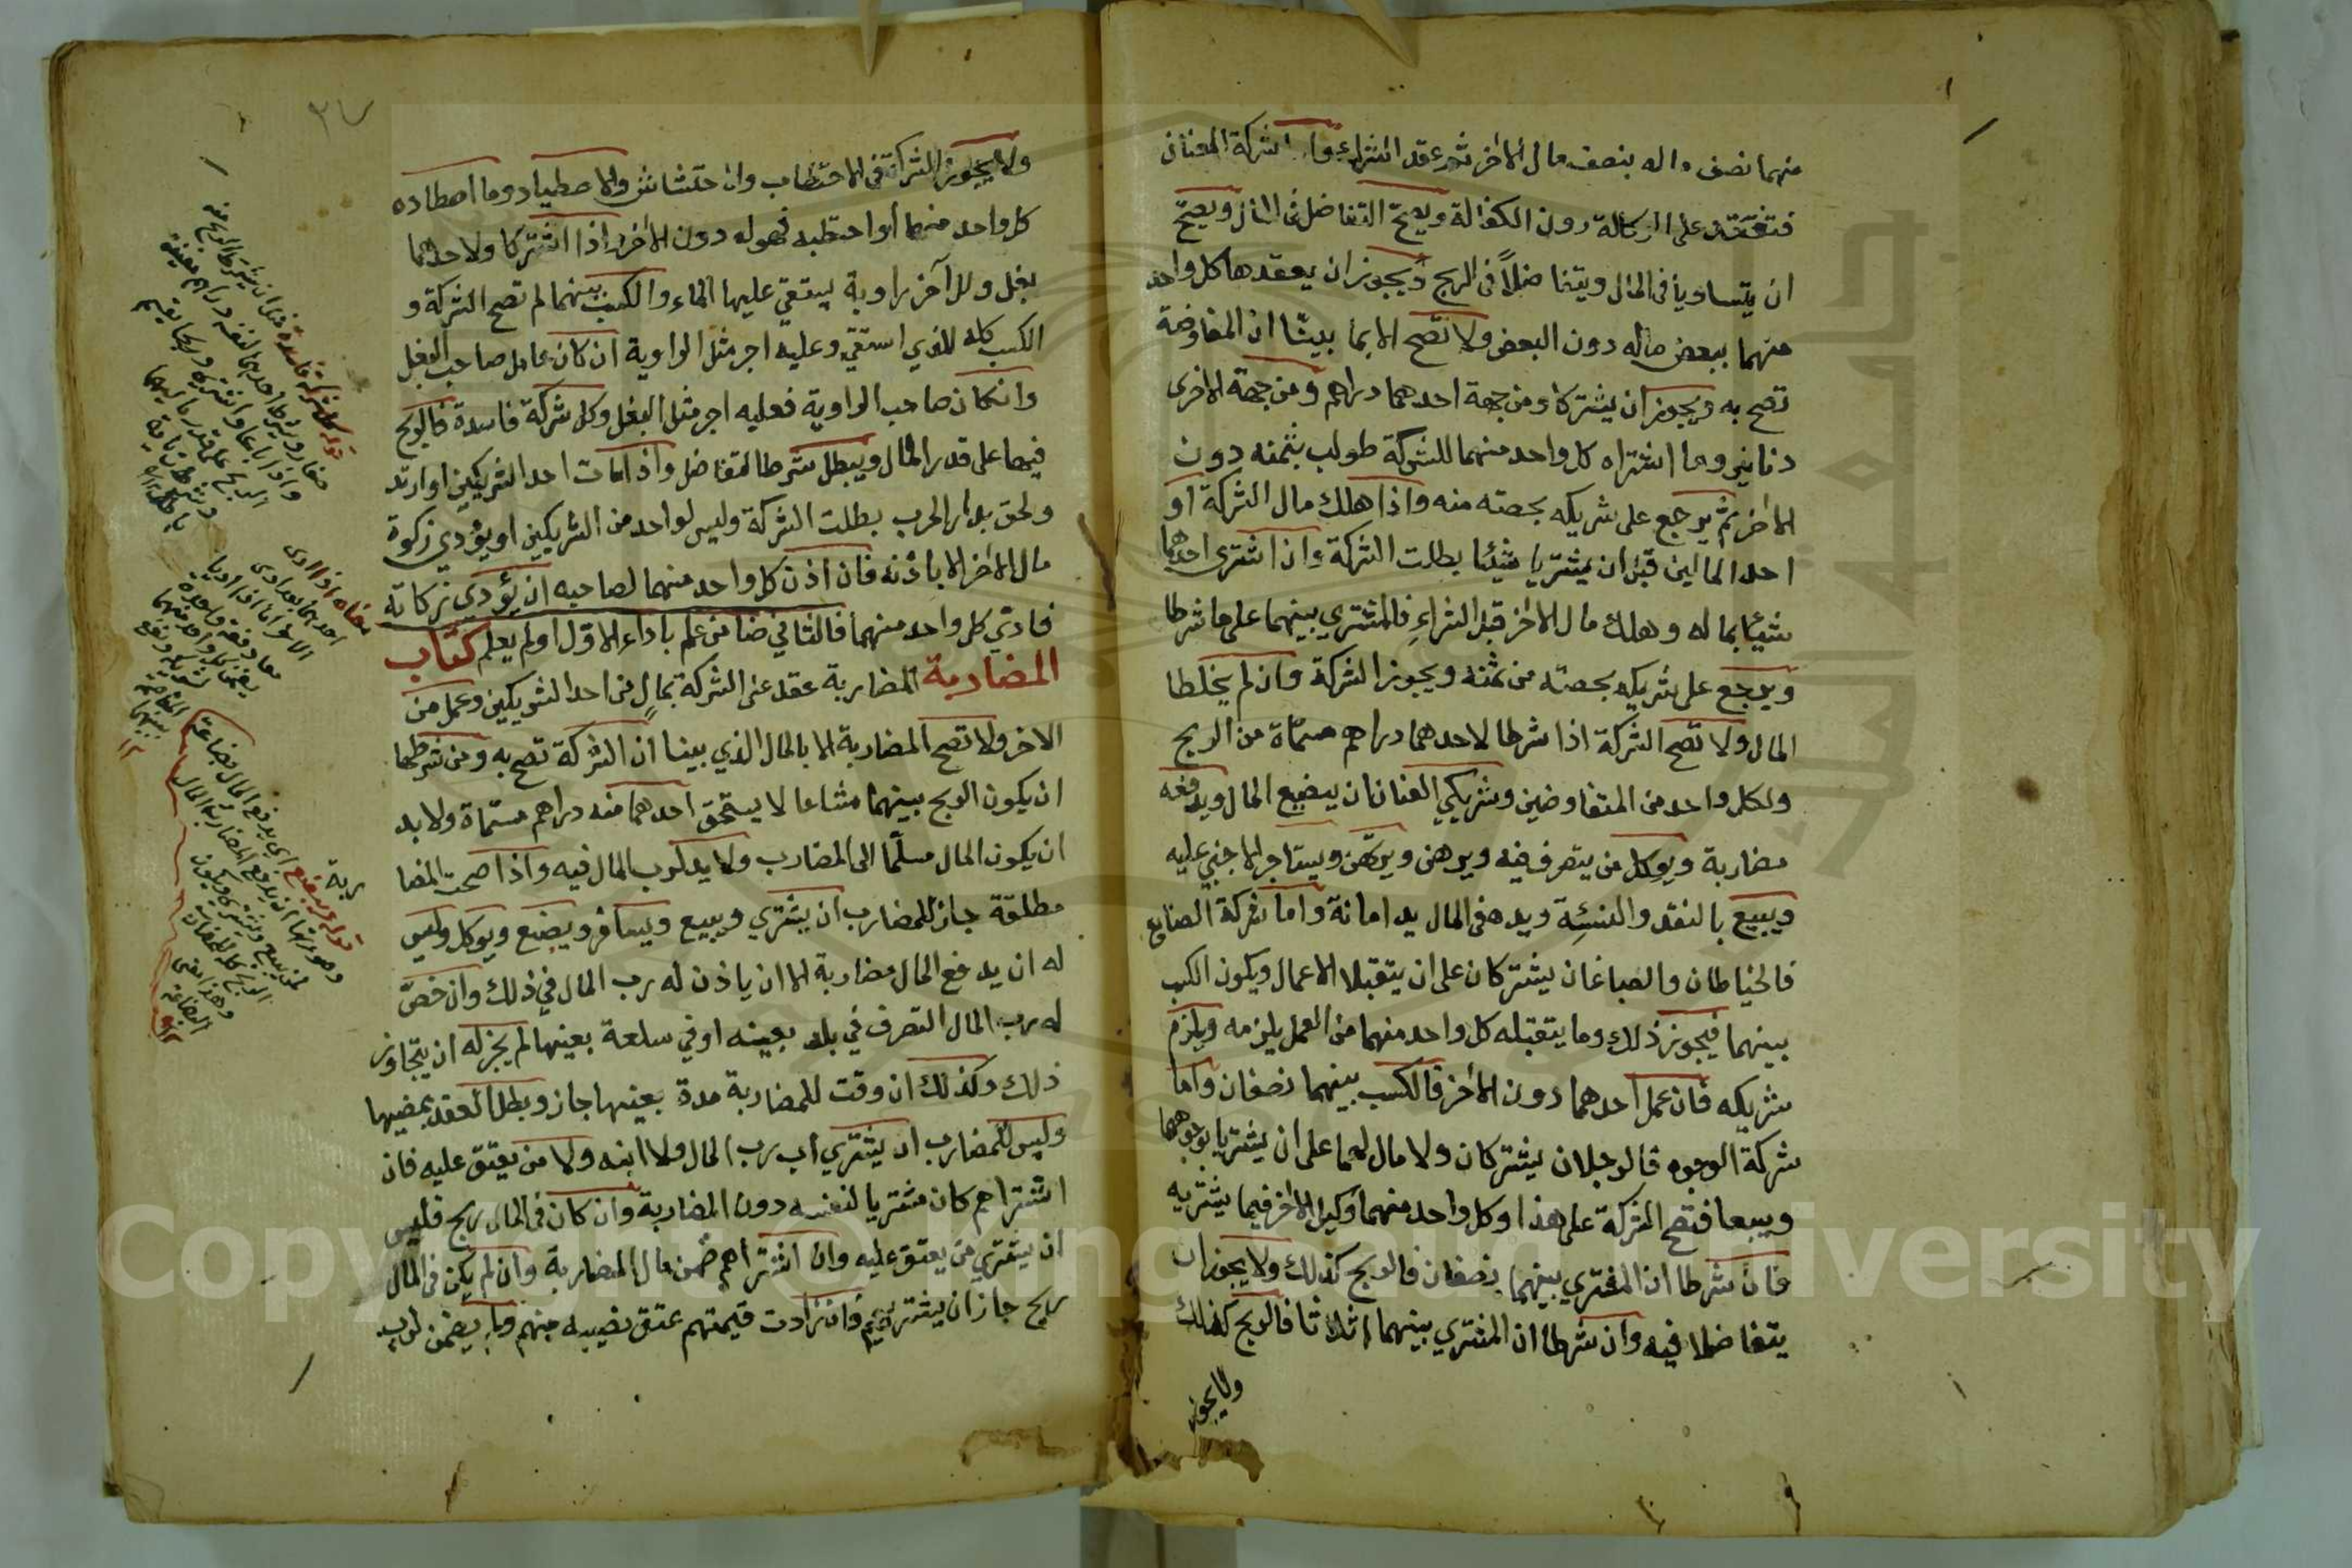 منهما نصف ماله بنصف مال الاخر ثم عقد الشركة واما شركة العنان
فتنعقد على الوكالة دون الكفالة ويصح التفاضل فى المال ويصح
ان يتساويا فى المال ويتفاضلاً فى الربح ويجوز ان يعقدها كل واحد
منهما ببعض ماله دون البعض ولا تصح الا بما بينّا ان المفاوضة
تصح به ويجوز ان يشتركا ومن جهة احدهما دراهم ومن جهة الاخرى
دنانير وما اشتراه كل واحد منهما للشركة طولب بثمنه دون
الاخر ثم يرجع على شريكه بحصته منه واذا هلك مال الشركة او
احد المالين قبل ان يشتريا شيئا بطلت الشركة وان اشترى احدهما
شيئا بماله وهلك مال الاخر قبل الشراء فالمشتري بينهما على ما شرطا
ويرجع على شريكه بحصته من ثمنه ويجوز الشركة وان لم يخلطا
المال ولا تصح الشركة اذا شرطا لاحدهما دراهم مسمّاة من الربح
ولكل واحد من المتفاوضين وشريكي العنان ان يبضع المال ويدفعه
مضاربة ويوكل من يتصرف فيه ويرهن ويرتهن ويستاجر الاجنبي عليه
ويبيع بالنقد والنسئة ويده فى المال يد امانة واما شركة الصنايع
فالخياطان والصباغان يشتركان على ان يتقبلا الاعمال ويكون الكسب
بينهما فيجوز ذلك وما يتقبله كل واحد منهما من العمل يلزمه ويلزم
شريكه فان عمل احدهما دون الاخر فالكسب بينهما نصفان واما
شركة الوجوه فالرجلان يشتركان ولا مال لهما على ان يشتريا بوجوههما
ويبيعا فتصح الشركة على هذا وكل واحد منهما وكيل الاخر فيما يشتريه
فان شرطا ان المشتري بينهما نصفان فالربح كذلك ولا يجوز ان
يتفاضلا فيه وان شرطا ان المشتري بينهما اثلاثا فالربح كذلك
ولا يجوز
ولا يجوز الشركة فى الاحتطاب والاحتشاش والاصطياد وما اصطاده
كل واحد منهما أو احتطبه فهو له دون الاخر واذا اشتركا ولاحدهما
بغل وللآخر راوية يستقي عليها الماء والكسب بينهما لم تصح الشركة و
الكسب كله للذي استقي وعليه اجر مثل الراوية ان كان عامل صاحب البغل
وان كان صاحب الراوية فعليه اجر مثل البغل وكل شركة فاسدة فالربح
فيها على قدر المال ويبطل شرط التفاضل واذا مات احد الشريكين او ارتد
ولحق بدار الحرب بطلت الشركة وليس لواحد من الشريكين ان يؤدي زكوة
مال الاخر الا باذنه فان اذن كل واحد منهما لصاحبه ان يؤدي زكاته
فادّي كل واحد منهما فالثاني ضامن علم باداء الاول او لم يعلم كتاب
المضاربة المضاربة عقد على الشركة بمال من احد الشريكين وعمل من
الاخر ولا تصح المضاربة الا بالمال الذي بينا ان الشركة تصح به ومن شرطها
ان يكون الربح بينهما مشاعا لا يستحق احدهما منه دراهم مسمّاة ولا بد
ان يكون المال مسلّما الى المضارب ولا يد لرب المال فيه واذا صحت المضا
ربة
مطلقة جاز للمضارب ان يشتري ويبيع ويسافر ويبضع ويوكل وليس
له ان يدفع المال مضاربة الا ان ياذن له رب المال في ذلك وان خصّ
له رب المال التصرف في بلد بعينه او في سلعة بعينها لم يجز له ان يتجاوز
ذلك وكذلك ان وقت للمضاربة مدة بعينها جاز وبطل العقد بمضيها
وليس للمضارب ان يشتري أب رب المال ولا ابنه ولا من يعتق عليه فان
اشتراهم كان مشتريا لنفسه دون المضاربة وان كان فى المال ربح فليس
ان يشتري من يعتق عليه وان اشتراهم ضمن مال المضاربة وان لم يكن فى المال
ربح جاز ان يشتريهم فان زادت قيمتهم عتق نصيبه منهم ولم يضمن لرب